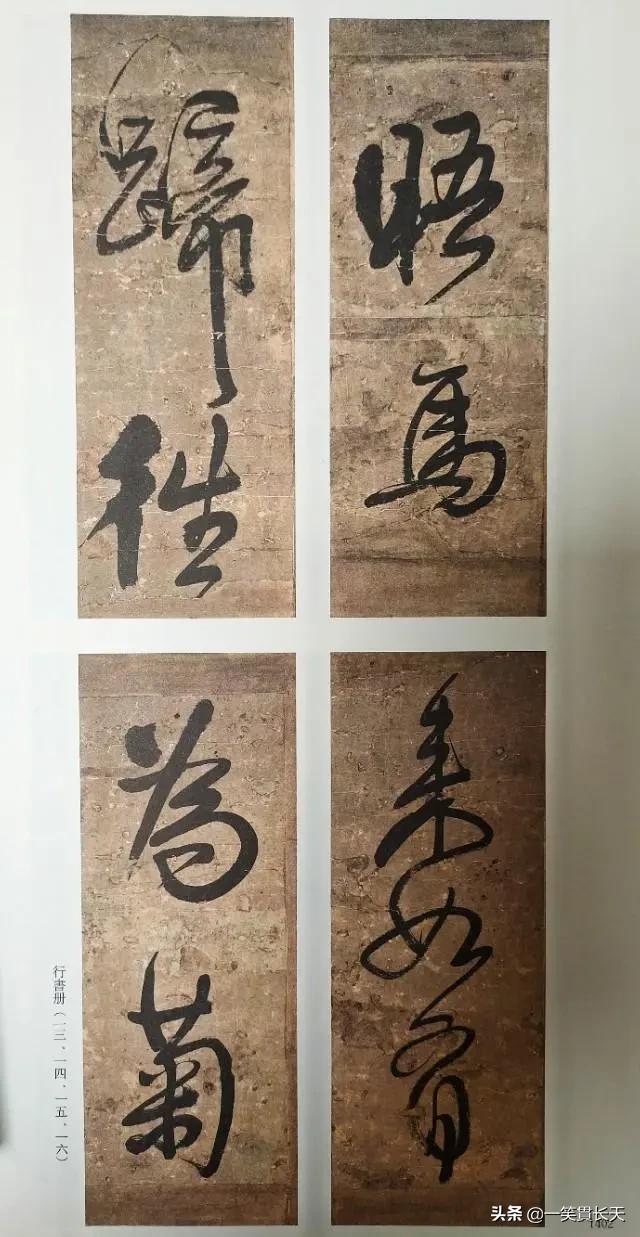 晤馬
蹄往
来如有
為菊
行書册（一三、一四、一五、一六）
1402
头条 @一笑貫长天